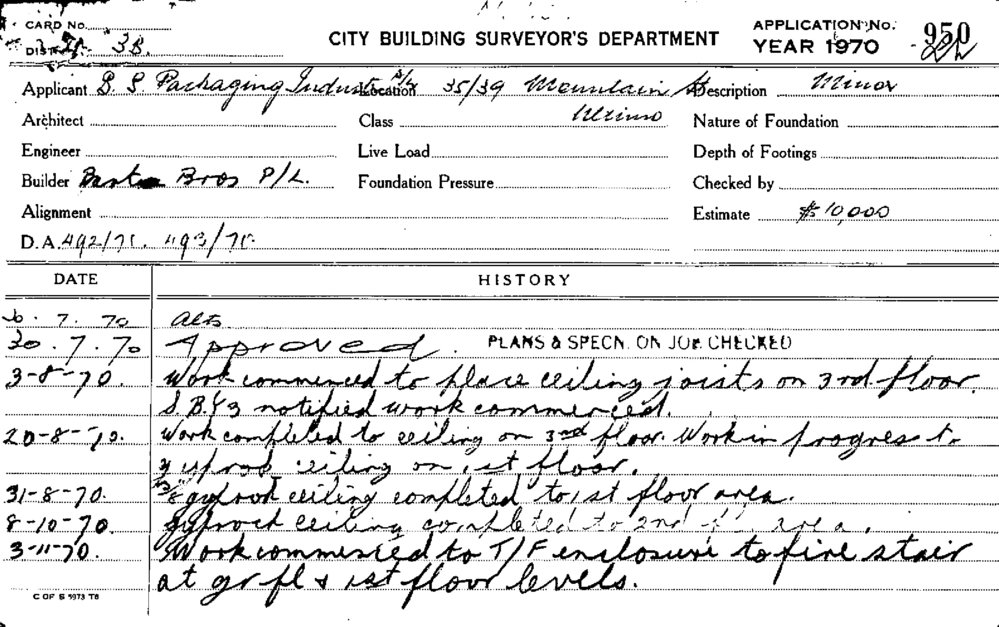 CARD No.
DIST. 3B.
CITY BUILDING SURVEYOR'S DEPARTMENT
APPLICATION No. 950
YEAR 1970
Applicant S. S. Packaging Industries P/L Location 35/39 Mountain St Description Minor
Architect Class Ultimo Nature of Foundation
Engineer Live Load Depth of Footings
Builder Bros P/L. Foundation Pressure Checked by
Alignment Estimate $10,000
D.A. 492/70. 493/70.
DATE HISTORY
6. 7. 70 Alts
30. 7. 70 Approved. PLANS & SPECN. ON JOB CHECKED
3-8-70. Work commenced to place ceiling joists on 3rd floor.
notified work commenced.
20-8-70. Work completed to ceiling on 3rd floor. Work in progress to
gyprock ceiling on 1st floor.
31-8-70. gyprock ceiling completed to 1st floor area.
8-10-70. gyprock ceiling completed to 2nd fl area.
3-11-70. Work commenced to T/F enclosure to fire stair
at gr fl & 1st floor levels.
C OF S 5973 T8